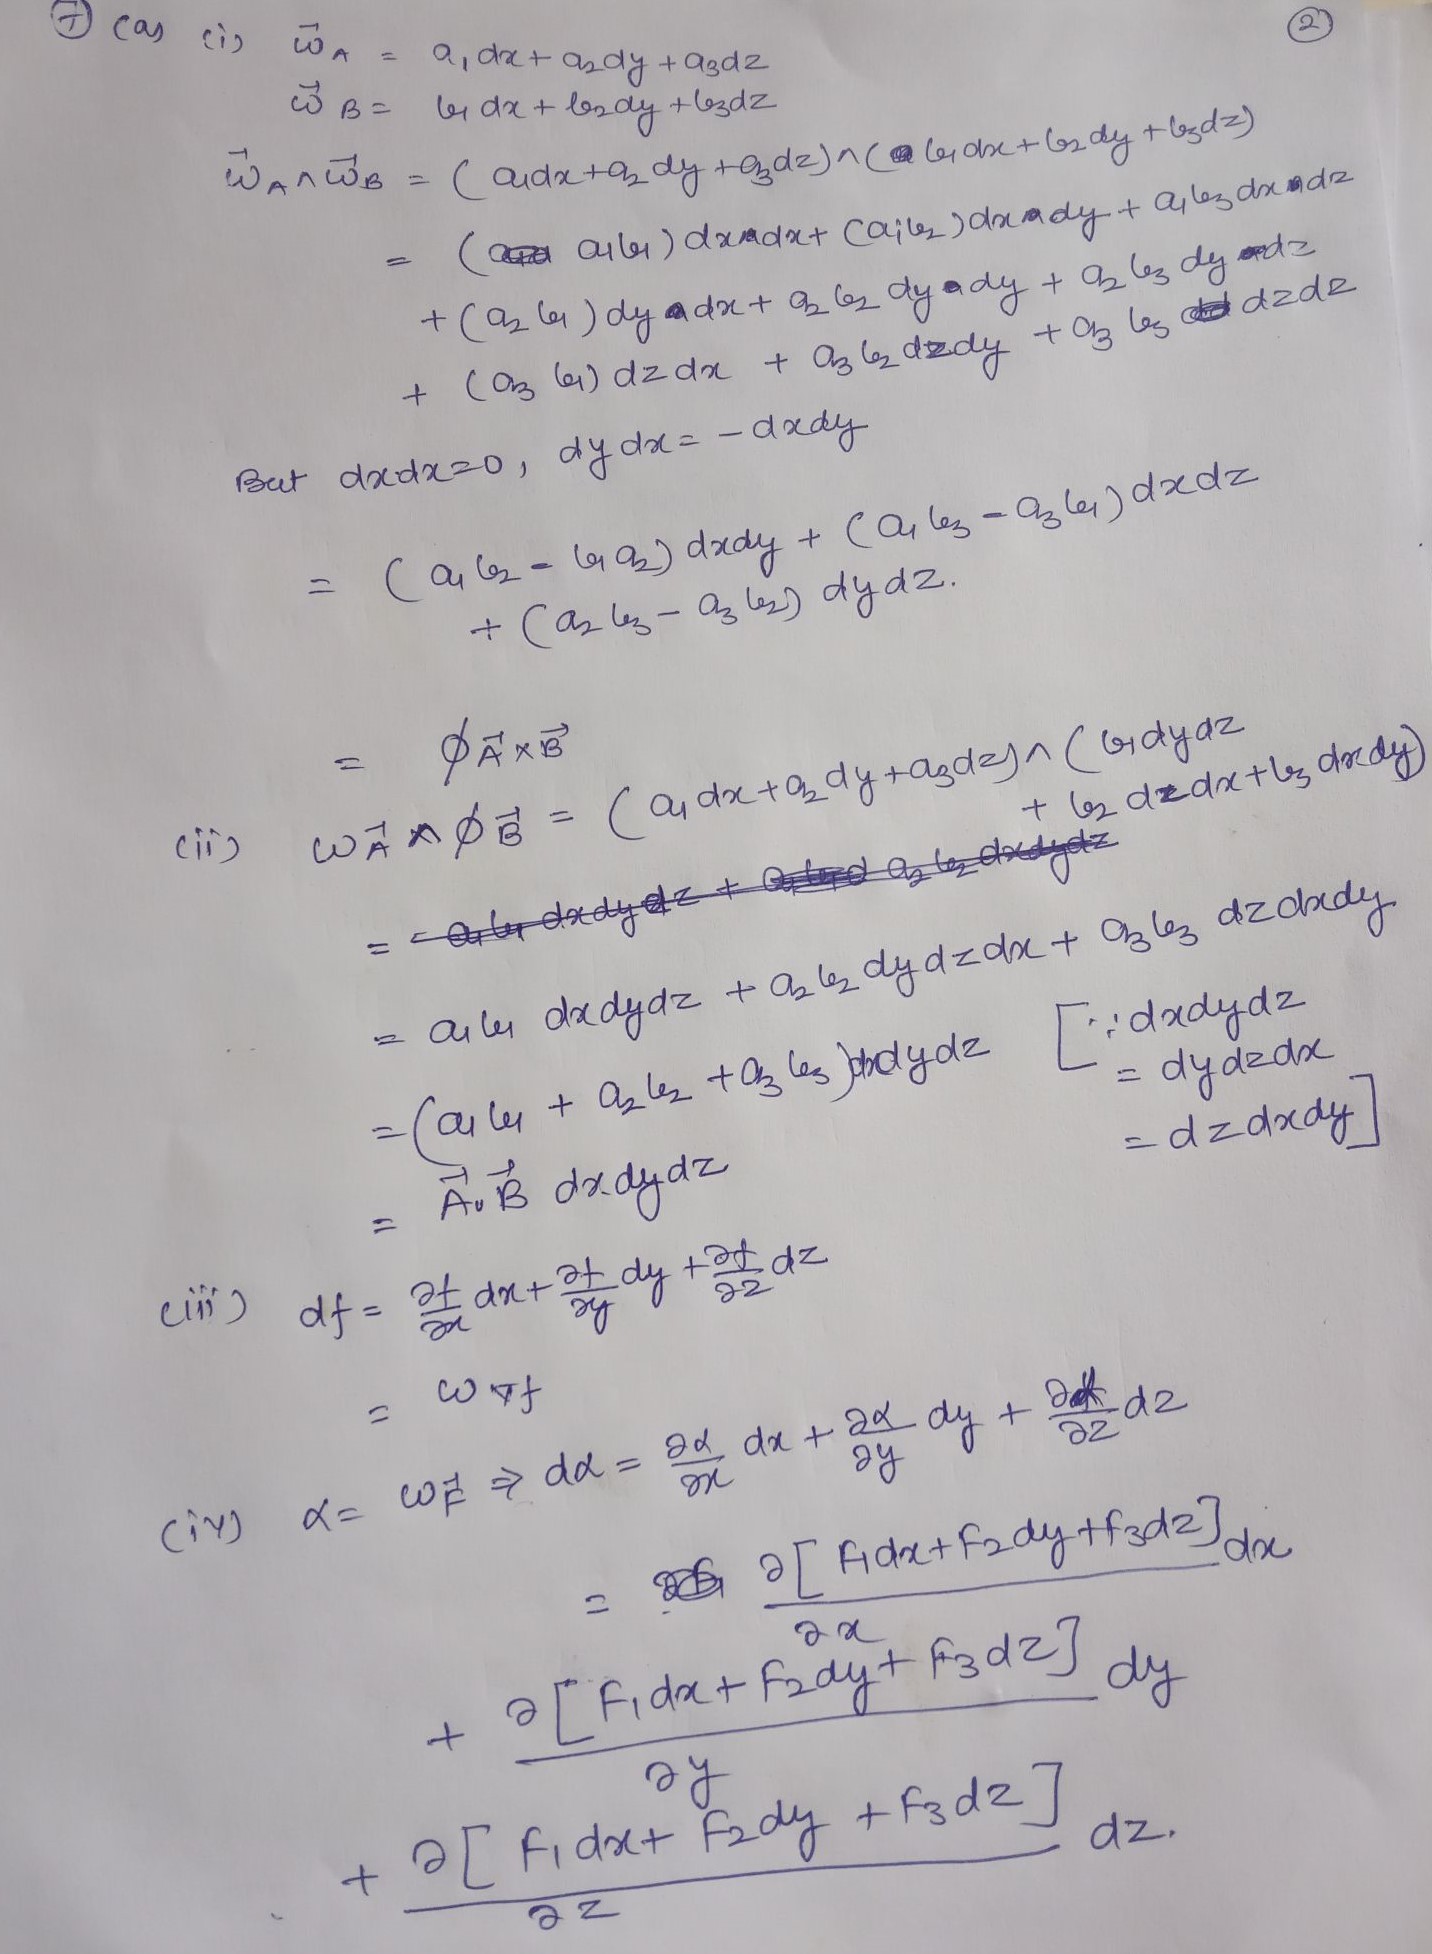 ②
⑦ (a) (i) ω⃗_A = a₁dx + a₂dy + a₃dz
ω⃗_B = b₁dx + b₂dy + b₃dz
ω⃗_A ∧ ω⃗_B = (a₁dx + a₂dy + a₃dz) ∧ (b₁dx + b₂dy + b₃dz)
= (a₁b₁) dx∧dx + (a₁b₂) dx∧dy + a₁b₃ dx∧dz
+ (a₂b₁) dy∧dx + a₂b₂ dy∧dy + a₂b₃ dy∧dz
+ (a₃b₁) dzdx + a₃b₂ dzdy + a₃b₃ dzdz
But dxdx=0, dydx = -dxdy
= (a₁b₂ - b₁a₂) dxdy + (a₁b₃ - a₃b₁) dxdz
+ (a₂b₃ - a₃b₂) dydz.
= ϕ_A⃗×B⃗
(ii) ω_A⃗ ∧ ϕ_B⃗ = (a₁dx + a₂dy + a₃dz) ∧ (b₁dydz
+ b₂dzdx + b₃dxdy)
=
= a₁b₁ dxdydz + a₂b₂ dydzdx + a₃b₃ dzdxdy
= (a₁b₁ + a₂b₂ + a₃b₃) dxdydz [∵ dxdydz
= dydzdx
= dzdxdy]
= A⃗.B⃗ dxdydz
(iii) df = ∂f/∂x dx + ∂f/∂y dy + ∂f/∂z dz
= ω_∇f
(iv) α = ω_F⃗ ⇒ dα = ∂α/∂x dx + ∂α/∂y dy + ∂α/∂z dz
= ∂[F₁dx + F₂dy + F₃dz]/∂x dx
+ ∂[F₁dx + F₂dy + F₃dz]/∂y dy
+ ∂[F₁dx + F₂dy + F₃dz]/∂z dz.